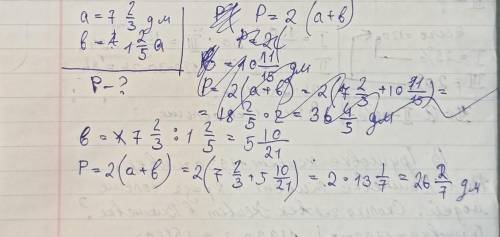 a = 7 2/3 дм
в = 1 2/5 а
P - ?
P = 2 (a+в)
P = 2(
в = 10 11/15 дм
P = 2 (a+в) = 2(7 2/3 + 10 11/15) =
= 18 2/5 · 2 = 36 4/5 дм
в = 7 2/3 : 1 2/5 = 5 10/21
P = 2(a+в) = 2(7 2/3 + 5 10/21) = 2 · 13 1/7 = 26 2/7 дм